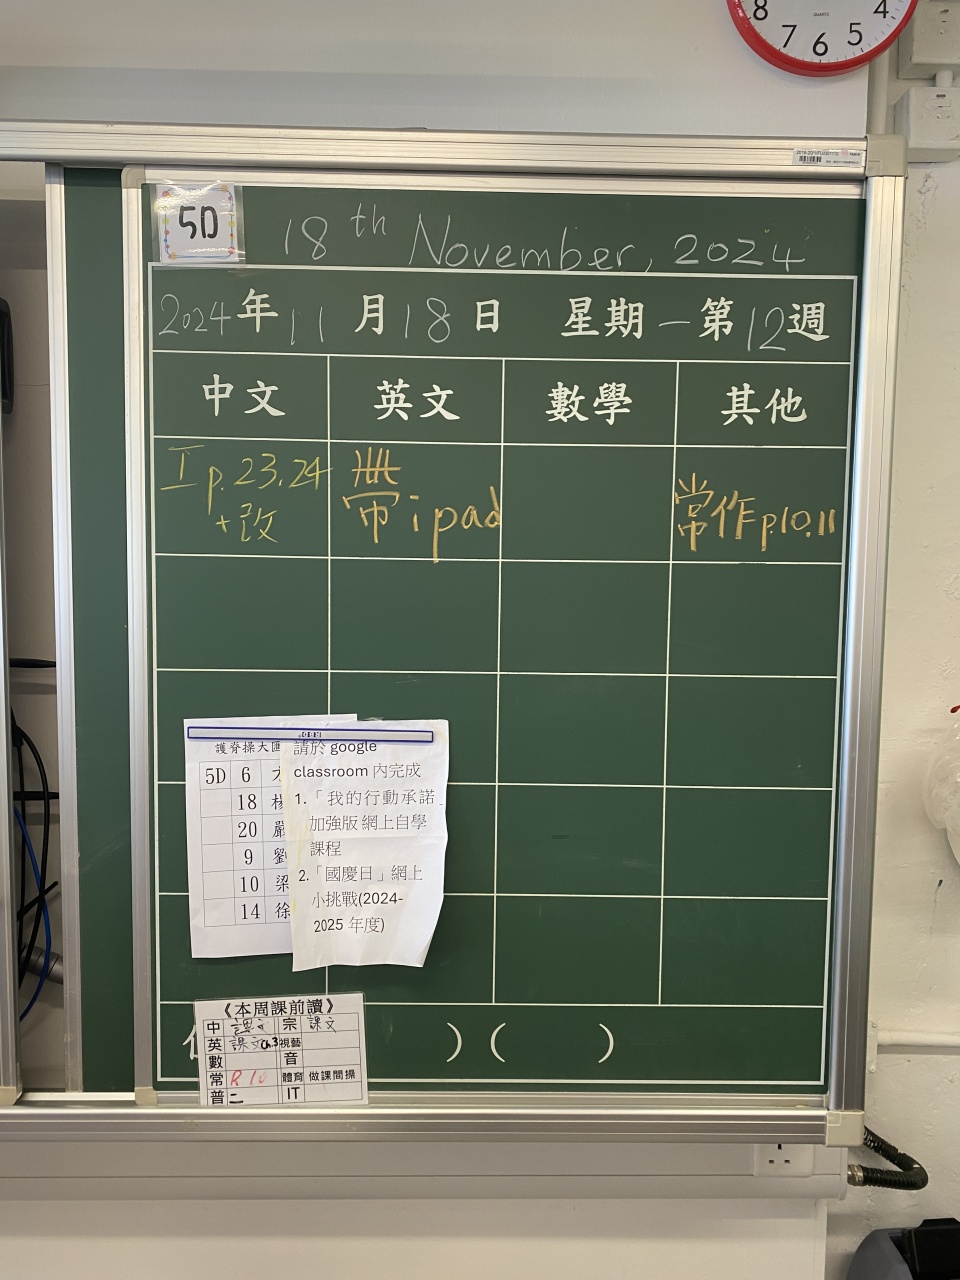 8 7 6 5 4
QUARTZ
5D
18th November, 2024
2024年11月18日 星期一第12週
中文 英文 數學 其他
工p.23.24
+改
帶ipad
常作p.10.11
護脊操大
5D 6
18 楊
20 嚴
9 劉
10 梁
14 徐
請於 google
classroom 內完成
1.「我的行動承諾
加強版 網上自學
課程
2.「國慶日」網上
小挑戰(2024-
2025 年度)
)( )
《本周課前讀》
中 課文 宗 課文
英 課文ch.3 視藝
數 音
常 體育 做課間操
普 二 IT